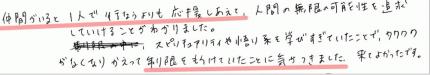 仲間がいると1人で行なうよりも応援しあえて、人間の無限の可能性を追求
していけることがわかりました。
スピリチュアリティや悟り系を学びすぎていたことで、ワクワク
がなくなりかえって制限をもうけていたことに気付きました。来てよかったです。